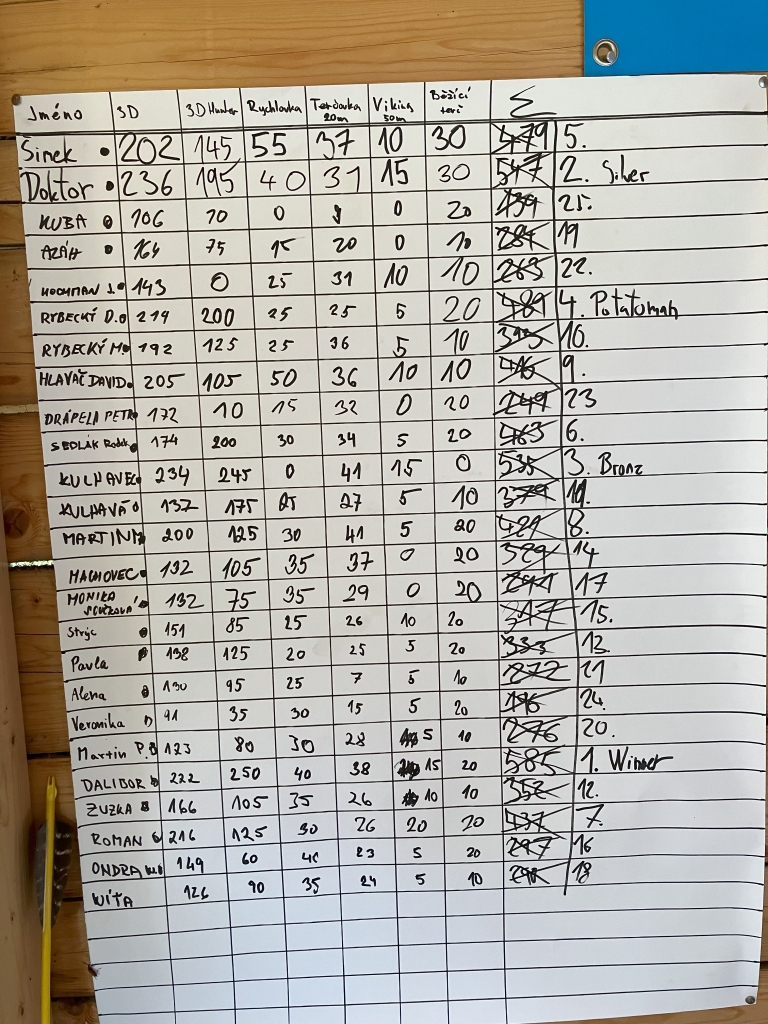 Jméno 3D 3D Hunter Rychlovka Terčovka 20m Viking 50m Běžící terč Σ
Šinek 202 145 55 37 10 30 479 5.
Doktor 236 195 40 31 15 30 547 2. Silver
KUBA 106 10 0 0 20 25.
AZÁH 164 75 15 20 0 10 284 19
HOCHMAN J. 143 0 25 31 10 10 263 22.
RYBECKÝ D. 219 200 25 25 5 20 489 4. Potatoman
RYBECKÝ M. 192 125 25 36 5 10 393 10.
HLAVAČ DAVID 205 105 50 36 10 10 416 9.
DRÁPELA PETR 172 10 15 32 0 20 249 23
SEDLÁK Radek 174 200 30 34 5 20 463 6.
KULHAVEC 234 245 0 41 15 0 535 3. Bronz
KULHAVÁ 137 175 25 27 5 10 379 11.
MARTIN M 200 125 30 41 5 20 421 8.
MACHOVEC 132 105 35 37 0 20 329 14
MONIKA SOUČKOVÁ 132 75 35 29 0 20 291 17
Strýc 151 85 25 26 10 20 317 15.
Pavla 138 125 20 25 5 20 333 13.
Alena 130 95 25 7 5 10 272 21
Veronika 91 35 30 15 5 20 196 24.
Martin P. 123 80 30 28 5 10 276 20.
DALIBOR 222 250 40 38 15 20 585 1. Winner
ZUZKA 166 105 35 26 10 10 352 12.
ROMAN 216 125 30 26 20 20 437 7.
ONDRA 149 60 40 23 5 20 297 16
VÍŤA 126 90 35 24 5 10 290 18